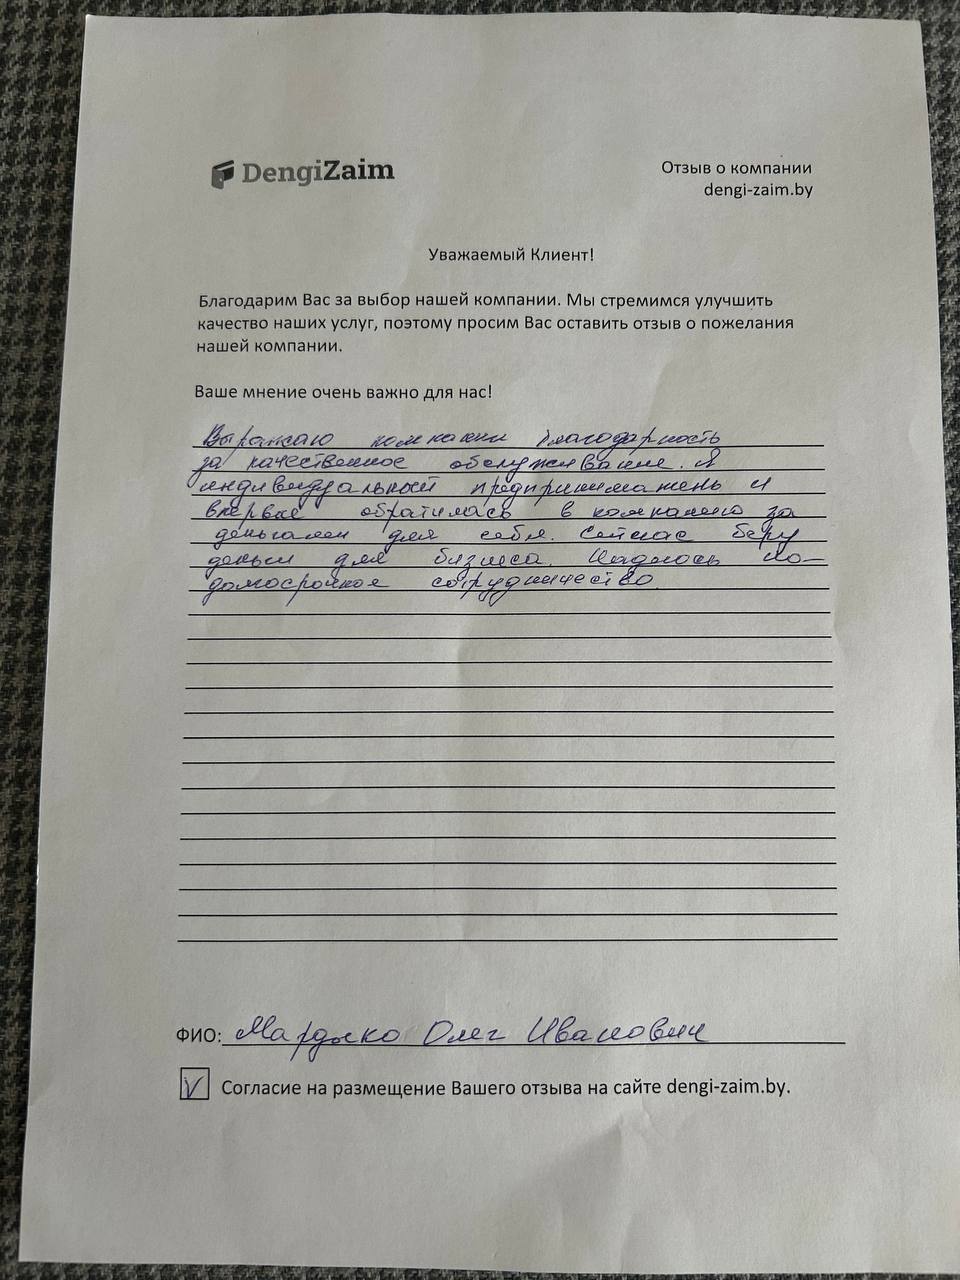 DengiZaim
Отзыв о компании
dengi-zaim.by
Уважаемый Клиент!
Благодарим Вас за выбор нашей компании. Мы стремимся улучшить
качество наших услуг, поэтому просим Вас оставить отзыв о пожелания
нашей компании.
Ваше мнение очень важно для нас!
Выражаю компании благодарность
за качественное обслуживание. Я
индивидуальный предприниматель и
впервые обратилась в компанию за
деньгами для себя. Сейчас беру
деньги для бизнеса. Надеюсь на
долгосрочное сотрудничество.
ФИО: Олег Иванович
V Согласие на размещение Вашего отзыва на сайте dengi-zaim.by.